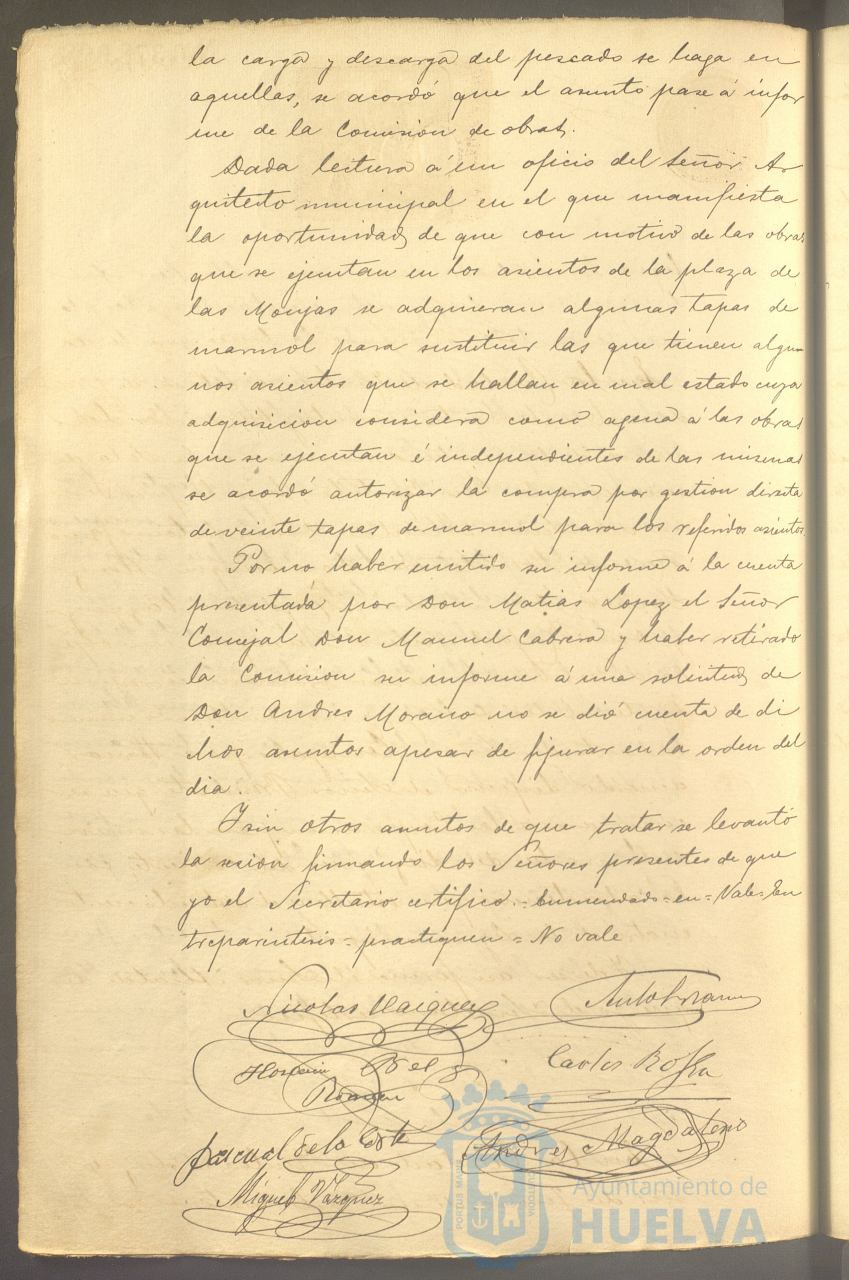 la carga y descarga del pescado se haga en
aquellas, se acordó que el asunto pase á infor
me de la Comision de obras.
Dada lectura á un oficio del Señor Ar
quitecto municipal en el que manifiesta
la oportunidad de que con motivo de las obras
que se ejecutan en los asientos de la plaza de
las Monjas se adquieran algunas tapas de
marmol para sustituir las que tienen algu
nos asientos que se hallan en mal estado cuya
adquisicion considera como agena á las obras
que se ejecutan é independientes de las mismas
se acordó autorizar la compra por gestion directa
de veinte tapas de marmol para los referidos asientos
Por no haber emitido su informe á la cuenta
presentada por Don Matias Lopez el Señor
Concejal Don Manuel Cabrera y haber retirado
la Comision su informe á una solicitud de
Don Andres Morano no se dió cuenta de di
chos asuntos apesar de figurar en la orden del
dia.
Y sin otros asuntos de que tratar se levantó
la sesion firmando los Señores presentes de que
yo el Secretario certifico. = Enmendado = en = Vale = En
treparéntesis = practiquen = No vale
Nicolas Vazquez
Carlos
Pascual de la Corte
Andres Magdaleno
Miguel Vázquez
PORTUS MARIS
Ayuntamiento de
HUELVA